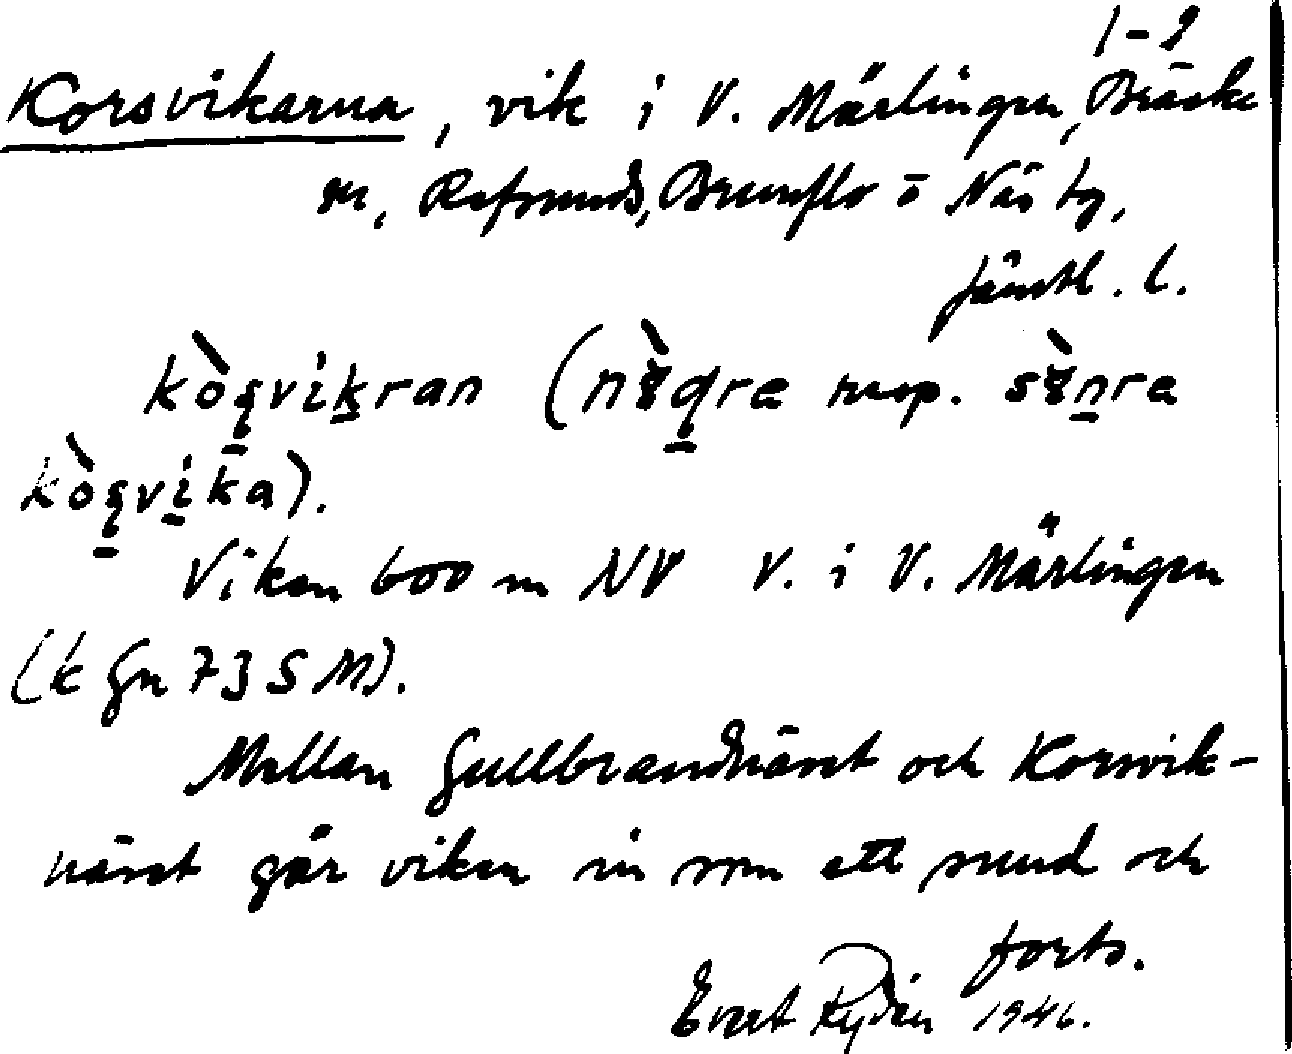 1-2
Korsvikarna, vik i V. Märlingen, Bräcke
m, Refsunds, Brunflo o Näs tg,
Jämtl. l.
kòsvikran (          resp.
kòsvika).
Viken 600 m NV V. i V. Märlingen
(k Gn 73 S M).
Mellan Gullbrandnäset och Korsvik-
näset går viken in som ett sund och
forts.
Evert Rydén 1946.